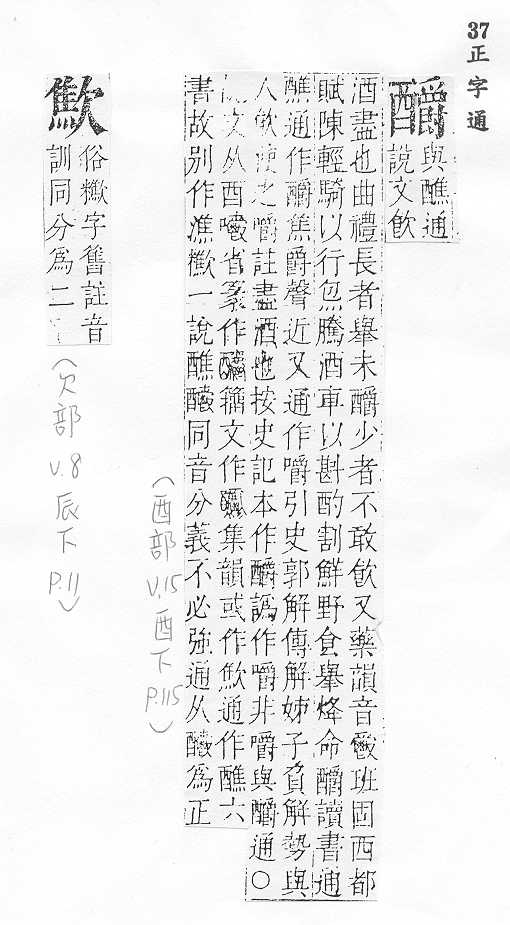 37正字通
釂
與醮通
說文飲
酒盡也曲禮長者舉未釂少者不敢飲又藥韻音爝班固西都
賦陳輕騎以行炰騰酒車以斟酌割鮮野食舉烽命釂讀書通
醮通作釂焦爵聲近又通作嚼引史郭解傳解姊子負解勢與
人飲使之嚼註盡酒也按史記本作釂譌作嚼非嚼與釂通○
說文从酉嚼省篆作釂籀文作集韻或作㱋通作醮六
書故別作潐㰹一說醮釂同音分義不必強通从釂為正
㱋
俗㰹字舊註音
訓同分為二
(酉部 V.15 酉下 P.115)
(欠部 V.8 辰下 P.11)